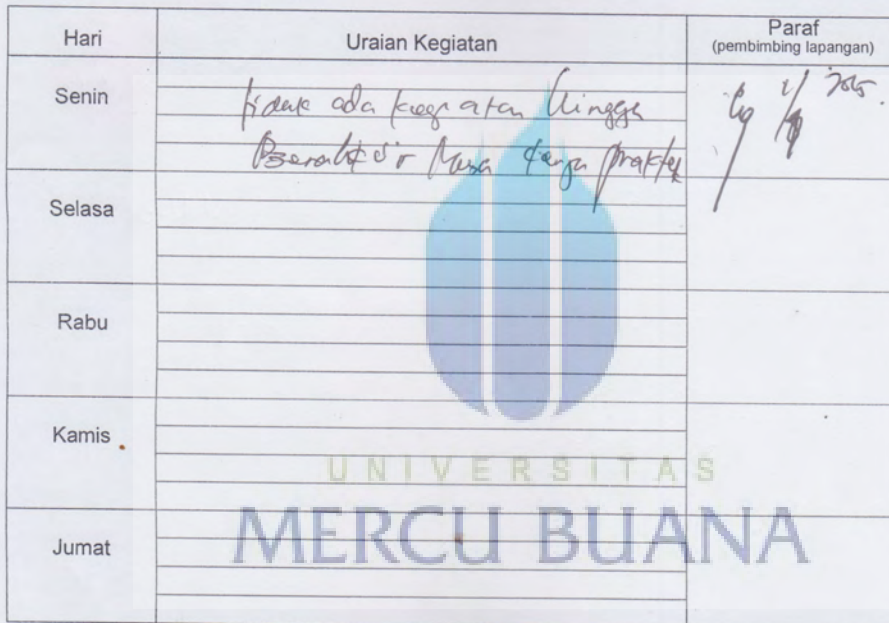 Hari Uraian Kegiatan Paraf
(pembimbing lapangan)
Senin
tidak ada kegiatan hingga
Berakhir Masa kerja praktek
Selasa
Rabu
Kamis
UNIVERSITAS
MERCU BUANA
Jumat